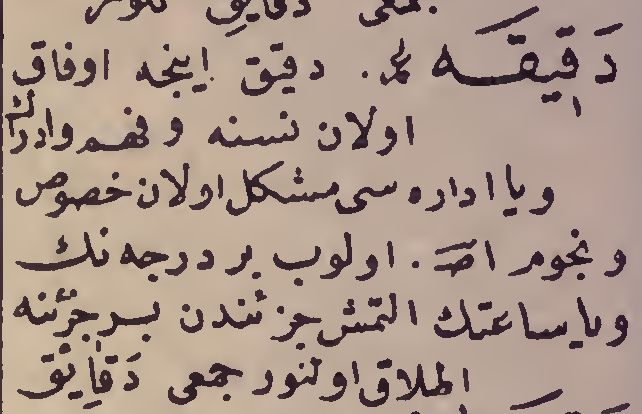 جمعى دقايق كلور
دَقِيقَـه عم. دقيق اينجه اوفاق
اولان نسنه و فهم وادراك
ويا اداره سى مشكل اولان خصوص
و نجوم اصـ. اولوب بر درجه نك
ويا ساعتك التمش جزئندن بر جزئنه
اطلاق اولنور جمعى دَقَايِق